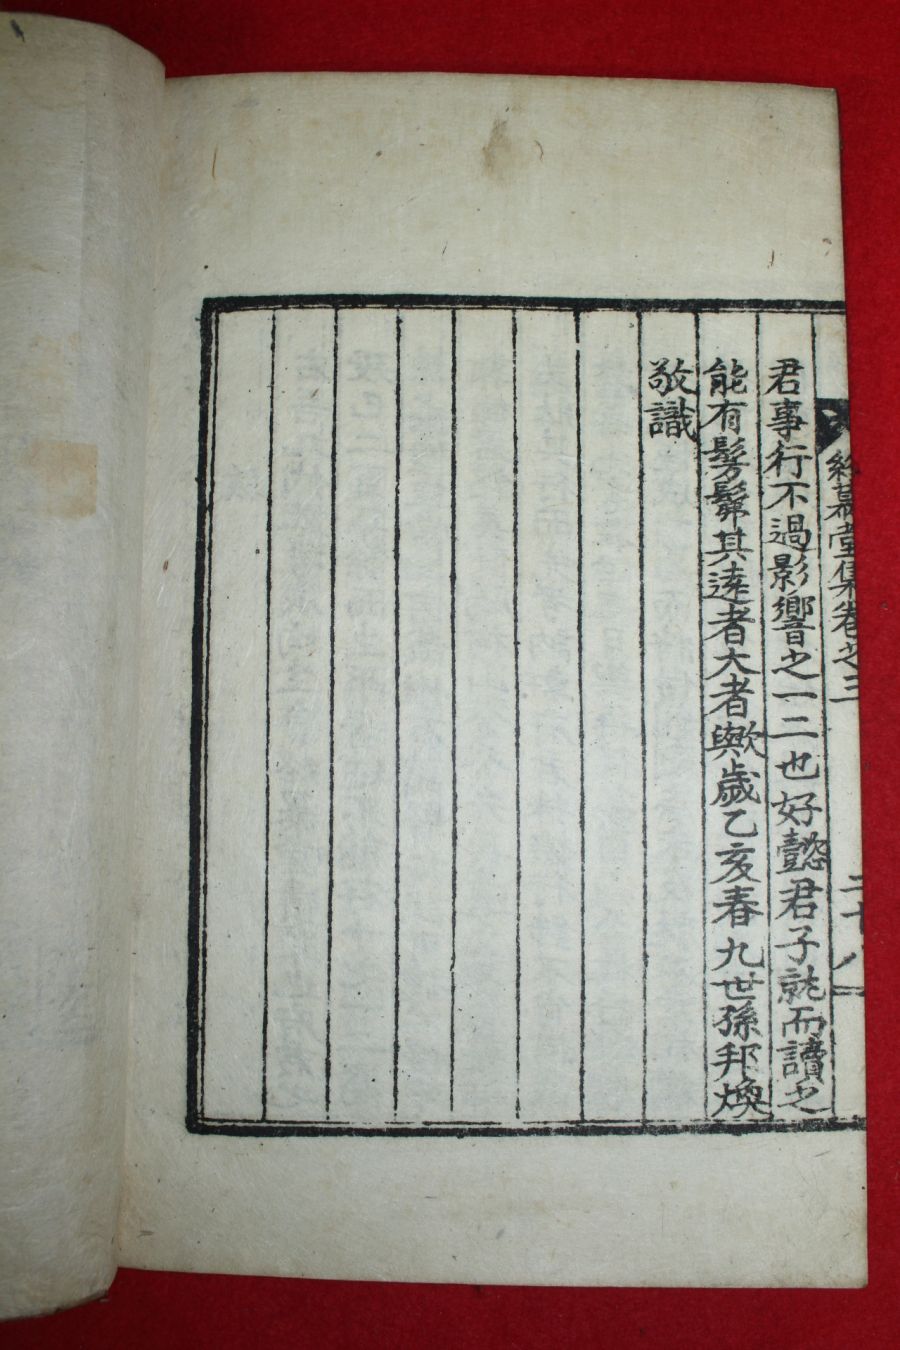 終慕堂集卷之三 二十八
君事行不過影響之一二也好懿君子就而讀之
能有髣髴其遠者大者歟歲乙亥春九世孫邦煥
敬識